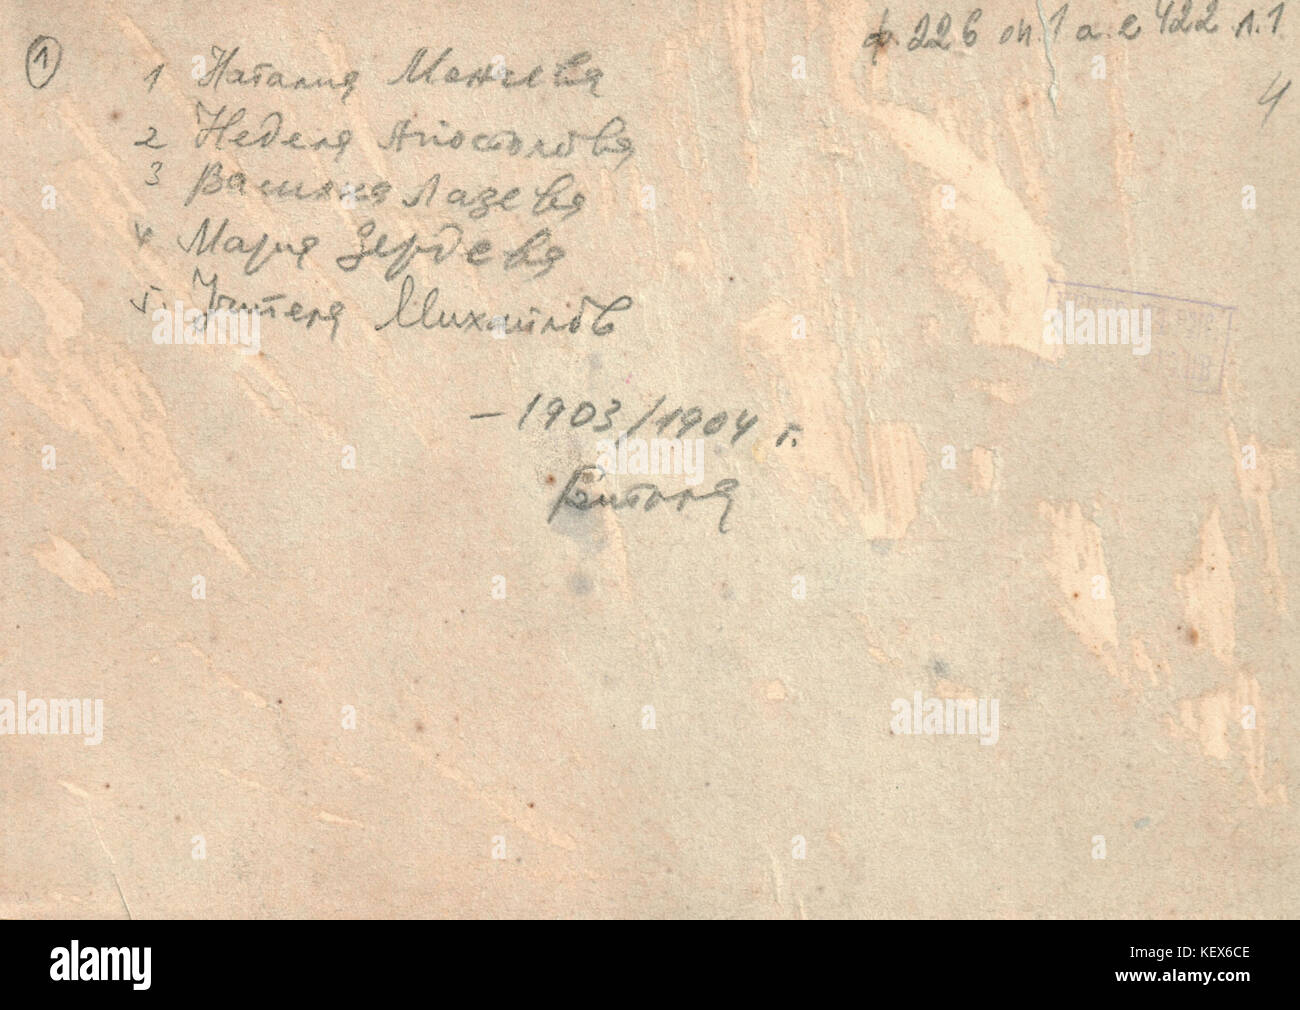 ф. 22 б оп. 1 а. е 422 л. 1
4
1
1 Наталия Манчева
2 Неделя Апостолова
3 Василка Лазева
4 Мария Зердева
5. Учителя Михайлов
– 1903/1904 г.
Битоля
alamy
Image ID: KEX6CE
www.alamy.com